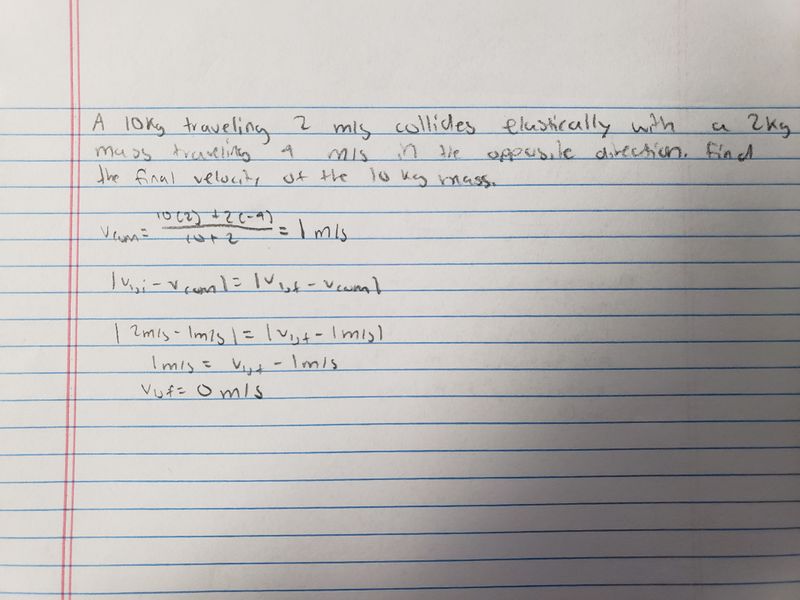 A 10kg traveling 2 m/s collides elastically with a 2kg
mass traveling 4 m/s in the opposite direction. Find
the final velocity of the 10 kg mass.
v_com = (10(2) + 2(-4))/(10+2) = 1 m/s
|v_1,i - v_com| = |v_1,f - v_com|
|2m/s - 1m/s| = |v_1,f - 1m/s|
1m/s = v_1,f - 1m/s
v_1,f = 0 m/s